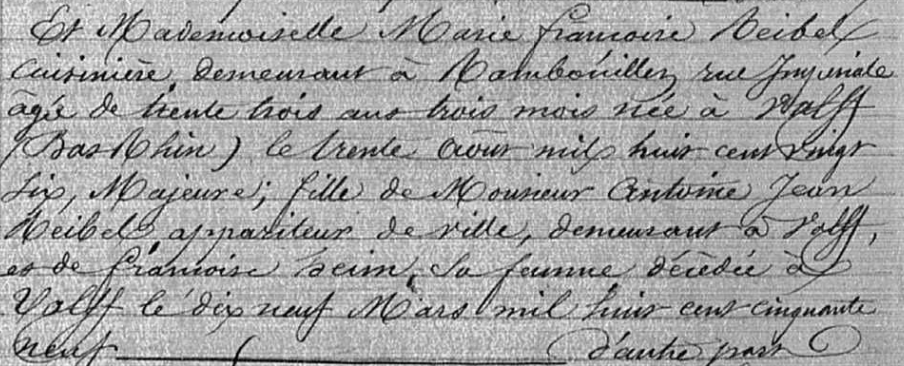 Et Mademoiselle Marie françoise Reibel
Cuisinière, demeurant à Rambouillez, rue Impériale
âgée de trente trois ans trois mois née à Valff
(Bas Rhin) le trente Août mil huit cent vingt
six, Majeure; fille de Monsieur Antoine Jean
Reibel appariteur de ville, demeurant à Valff,
et de françoise heim, Sa femme décèdée à
Valff le dix neuf Mars mil huit cent cinquante
neuf d'autre part